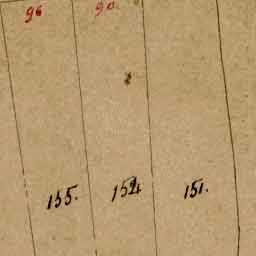 96 90.
155. 154 151.